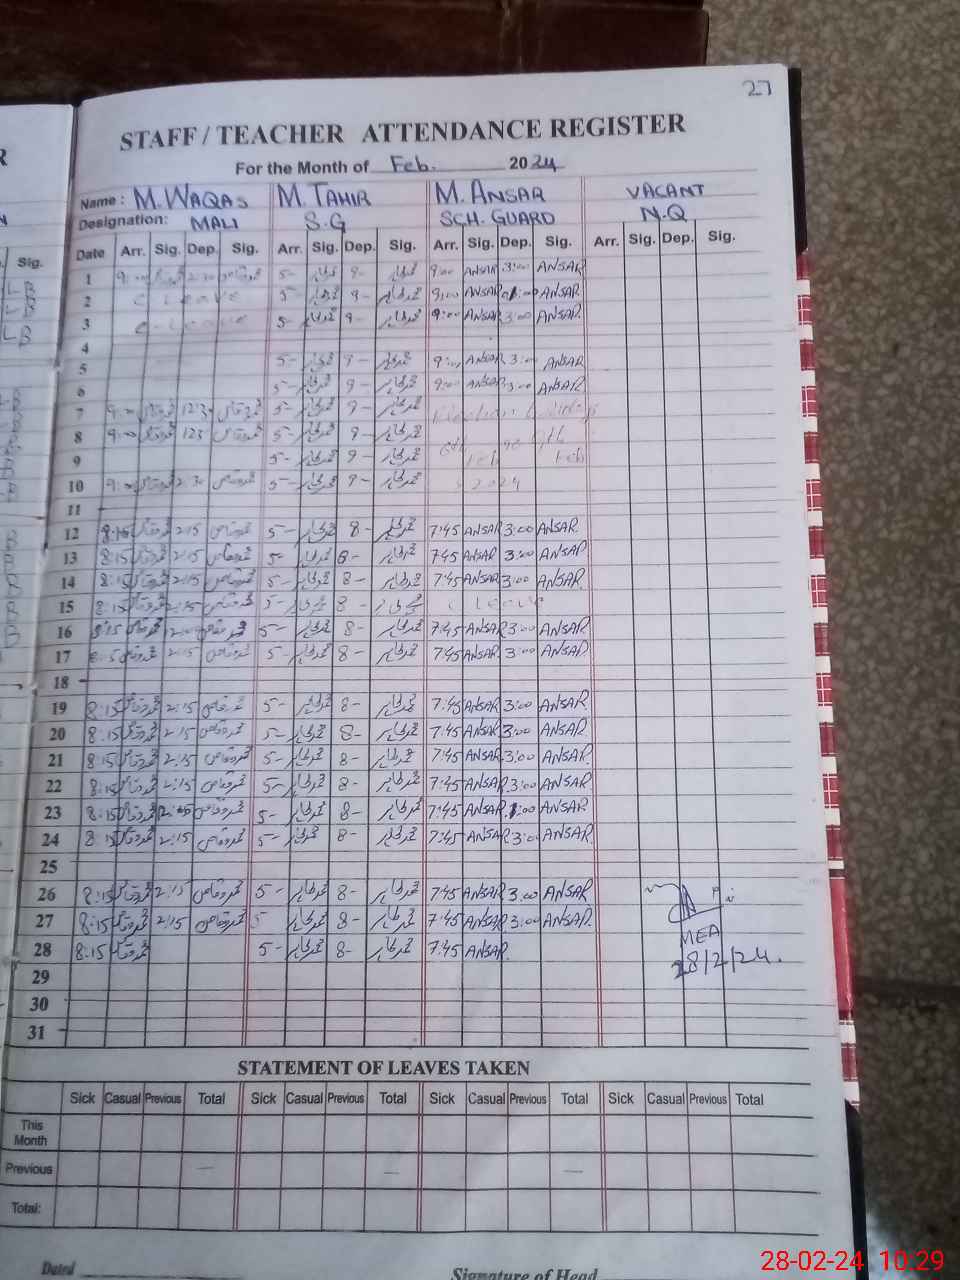 27
STAFF / TEACHER ATTENDANCE REGISTER
For the Month of Feb. 2024
Name : M. WAQAS M. TAHIR M. ANSAR VACANT
Designation: MALI S.G SCH. GUARD N.Q
Date Arr. Sig. Dep. Sig. Arr. Sig. Dep. Sig. Arr. Sig. Dep. Sig. Arr. Sig. Dep. Sig.
1 9:00 5- 9- 9:00 ANSAR 3:00 ANSAR
2 C Leave 5- 9- 9:00 ANSAR ANSAR
3 C-Leave 5- 9- 9:00 ANSAR 3:00 ANSAR.
4
5 5- 9- 9:00 ANSAR 3:00 ANSAR
6 5- 9- 9:00 ANSAR 3:00 ANSAR
7 9:00 محمد وقاص 5- محمد طاہر 9- محمد طاہر Election
8 9:00 محمد وقاص 5- محمد طاہر 9- محمد طاہر 6th to 9th
9 5- محمد طاہر 9- محمد طاہر Feb Feb
10 9:00 محمد وقاص 5- محمد طاہر 9- محمد طاہر 2024
11
12 8:15 محمد وقاص 2:15 محمد وقاص 5- محمد طاہر 8- محمد طاہر 7:45 ANSAR 3:00 ANSAR.
13 8:15 محمد وقاص 2:15 محمد وقاص 5- محمد طاہر 8- محمد طاہر 7:45 ANSAR 3:00 ANSAR.
14 8:15 محمد وقاص 2:15 محمد وقاص 5- محمد طاہر 8- محمد طاہر 7:45 ANSAR 3:00 ANSAR
15 8:15 محمد وقاص 2:15 محمد وقاص 5- محمد طاہر 8- محمد طاہر C Leave
16 8:15 محمد وقاص محمد وقاص 5- محمد طاہر 8- محمد طاہر 7:45 ANSAR 3:00 ANSAR
17 محمد وقاص 2:15 محمد وقاص 5- محمد طاہر 8- محمد طاہر 7:45 ANSAR. 3:00 ANSAR.
18
19 8:15 محمد وقاص 2:15 محمد وقاص 5- محمد طاہر 8- محمد طاہر 7:45 ANSAR 3:00 ANSAR.
20 8:15 محمد وقاص 2:15 محمد وقاص 5- محمد طاہر 8- محمد طاہر 7:45 ANSAR 3:00 ANSAR.
21 8:15 محمد وقاص 2:15 محمد وقاص 5- محمد طاہر 8- محمد طاہر 7:45 ANSAR 3:00 ANSAR.
22 8:15 محمد وقاص 2:15 محمد وقاص 5- محمد طاہر 8- محمد طاہر 7:45 ANSAR. 3:00 ANSAR.
23 8:15 محمد وقاص محمد وقاص 5- محمد طاہر 8- محمد طاہر 7:45 ANSAR. ANSAR.
24 8:15 محمد وقاص 2:15 محمد وقاص 5- محمد طاہر 8- محمد طاہر 7:45 ANSAR 3:00 ANSAR.
25
26 8:15 محمد وقاص 2:15 محمد وقاص 5- محمد طاہر 8- محمد طاہر 7:45 ANSAR 3:00 ANSAR
27 8:15 محمد وقاص 2:15 محمد وقاص 5 محمد طاہر 8- محمد طاہر 7:45 ANSAR 3:00 ANSAR.
MEA
28 8:15 محمد وقاص 5- محمد طاہر 8- محمد طاہر 7:45 ANSAR. 28/2/24.
29
30
31
STATEMENT OF LEAVES TAKEN
Sick Casual Previous Total Sick Casual Previous Total Sick Casual Previous Total Sick Casual Previous Total
This
Month
Previous — — —
Total:
Dated
Signature of Head
28-02-24 10:29